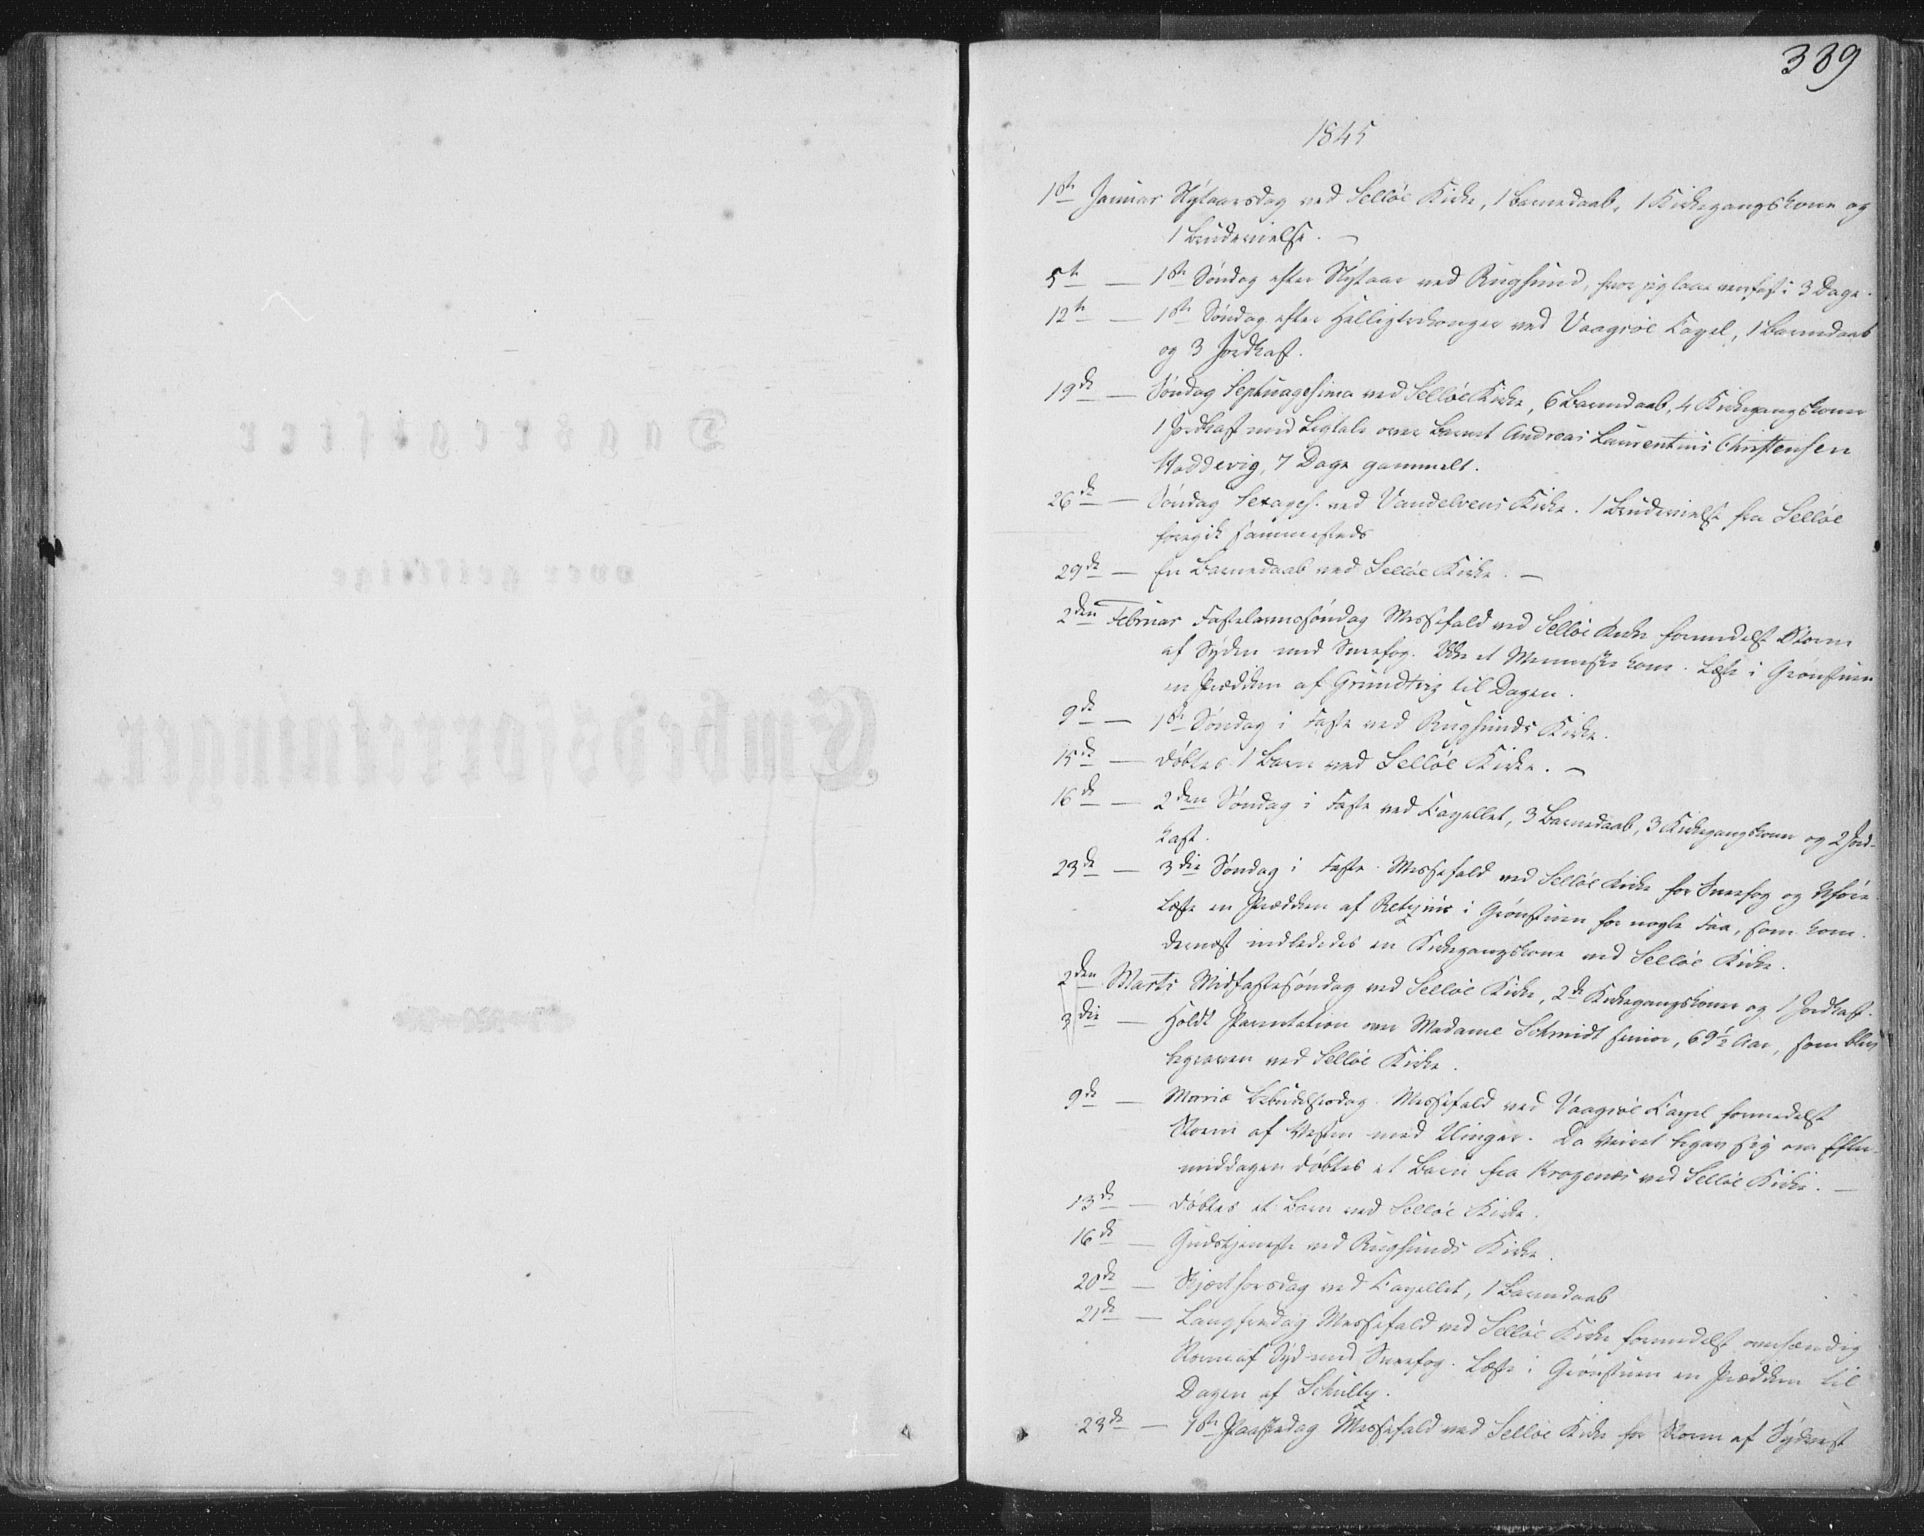 339
1845
1ste Januar Nÿtaarsdag ved Selløe Kirke, 1 Barnedaab, 1 Kirkegangskone og
1 Brudevielse. —
5te — 1ste Søndag efter Nÿtaar ved Rugsund, hvor jeg laae veirfast i 3 Dage.
12te — 1ste Søndag efter Helligtrekonger ved Vaagsøe Capel, 1 Barnedaab
og 3 Jordkast.
19de — Søndag Septuagesima ved Selløe Kirke, 6 Barnedaab, 4 Kirkegangskoner
1 Jordkast med Ligtale over Barnet Andreas Laurentius Christensen
Haddevig, 7 Dage gammelt.
26de — Søndag Sexages. ved Vandelvens Kirke. 1 Brudevielse fra Selløe
foregik sammesteds
29de — En Barnedaab ved Selløe Kirke. —
2den Februar Fastelavnssøndag Messefald ved Selløe Kirke formedelst Storm
af Syden med Sneefog. Ikke et Menneske kom. Læste i Grønstuen
en Prædiken af Grundtvig til Dagen.
9de — 1ste Søndag i Faste ved Rugsunds Kirke.
15de — døbtes 1 Barn ved Selløe Kirke. —
16de — 2den Søndag i Faste ved Capellet, 3 Barnedaab, 3 Kirkegangskoner og 2 Jord-
kast.
23de — 3die Søndag i Faste. Messefald ved Selløe Kirke for Sneefog og Uføre.
Læste en Prædiken af Retzius i Grønstuen for nogle Faa, som kom.
dernæst indlededes en Kirkegangskone ved Selløe Kirke.
2den Marts Midfastesøndag ved Selløe Kirke, 2de Kirkegangskoner og 1 Jordkast.
3die — Holdt Parentation over Madame Schmidt senior, 69½ Aar, som blev
begraven ved Selløe Kirke.
9de — Mariæ Bebudelsesdag. Messefald ved Vaagsøe Capel formedelst
Storm af Vesten med Ælinger. Da Veiret begav sig om Efter-
middagen døbtes et Barn fra Kragenæs ved Selløe Kirke. —
13de — døbtes et Barn ved Selløe Kirke.
16de — Gudstjeneste ved Rugsunds Kirke.
20de — Skjærthorsdag ved Capellet, 1 Barnedaab
21de — Langfredag Messefald ved Selløe Kirke formedelst
Storm af Syd med Sneefog. Læste i Grønstuen en Prædiken til
Dagen af Schultz.
23de — 1ste Paaskedag Messefald ved Selløe Kirke for Storm af Sydvest